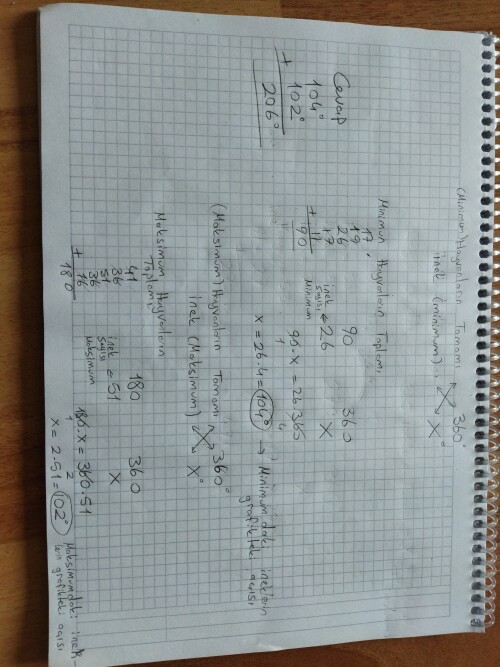 (Minimum) Hayvanların Tamamı 360°
inek (minimum) X°
Minimum Hayvanların Toplamı
17
19
26
17
+ 11
90
90 360
inek sayısı ← 26 X
Minimum
90.x = 26.365
x = 26.4 = 104° → Minimumdaki ineklerin
grafikteki açısı
(Maksimum) Hayvanların Tamamı 360°
inek (Maksimum) X°
Maksimum Hayvanların
Toplamı
41
36
51
36
+ 16
180
180 360
inek sayısı ← 51 X
Maksimum
180.x = 360.51
x = 2.51 = 102° Maksimumdaki inek-
lerin grafikteki açısı
Cevap
104°
+ 102°
206°